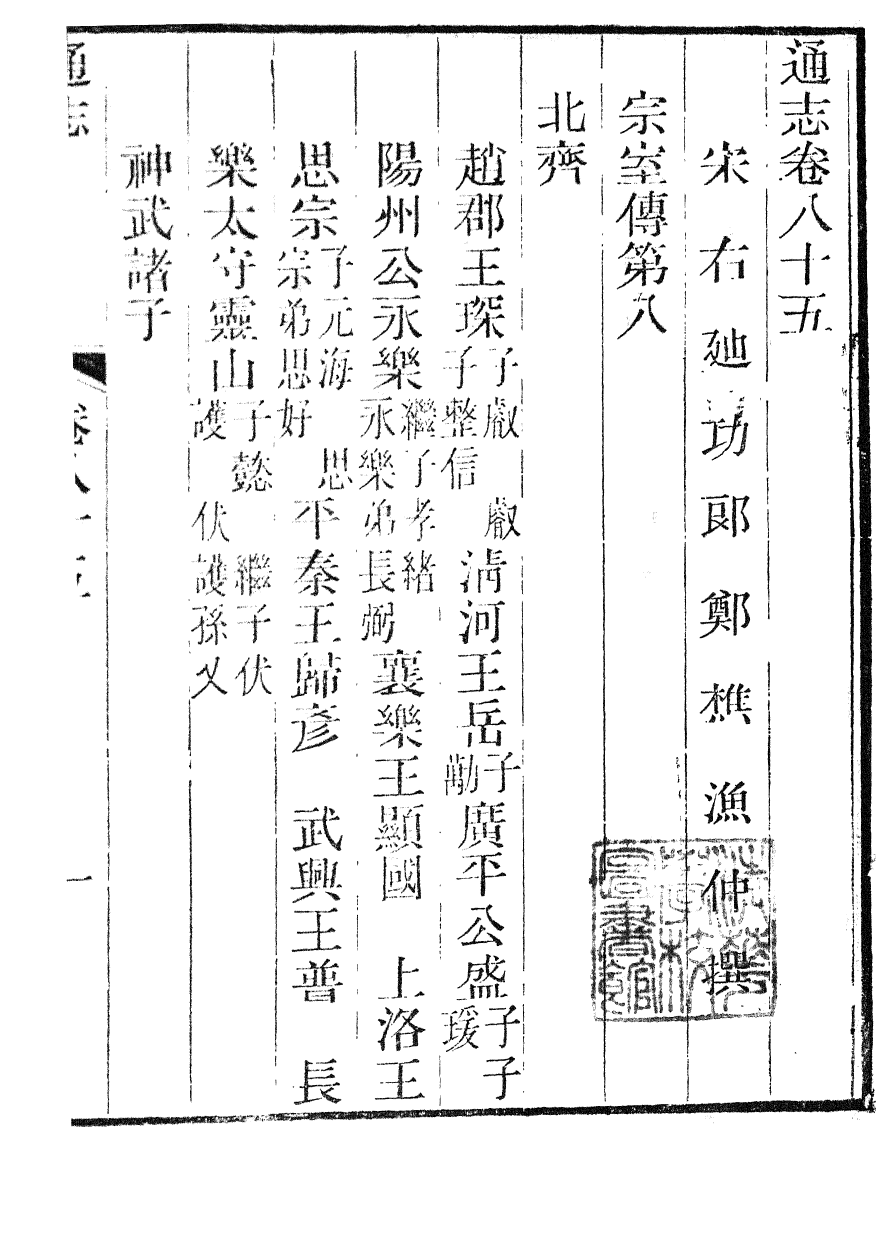 通志卷八十五
宋右迪功郎鄭樵漁仲撰
宗室傳第八
北齊
趙郡王琛子叡　叡子整信　清河王岳子勱廣平公盛子子瑗
陽州公永樂繼子孝緒永樂弟長弼襄樂王顯國　上洛王
思宗子元海　思宗弟思好　平秦王歸彥　武興王普　長
樂太守靈山子懿　繼子伏護　伏護孫乂
神武諸子
通志　卷八十五　一
清華學校圖書館